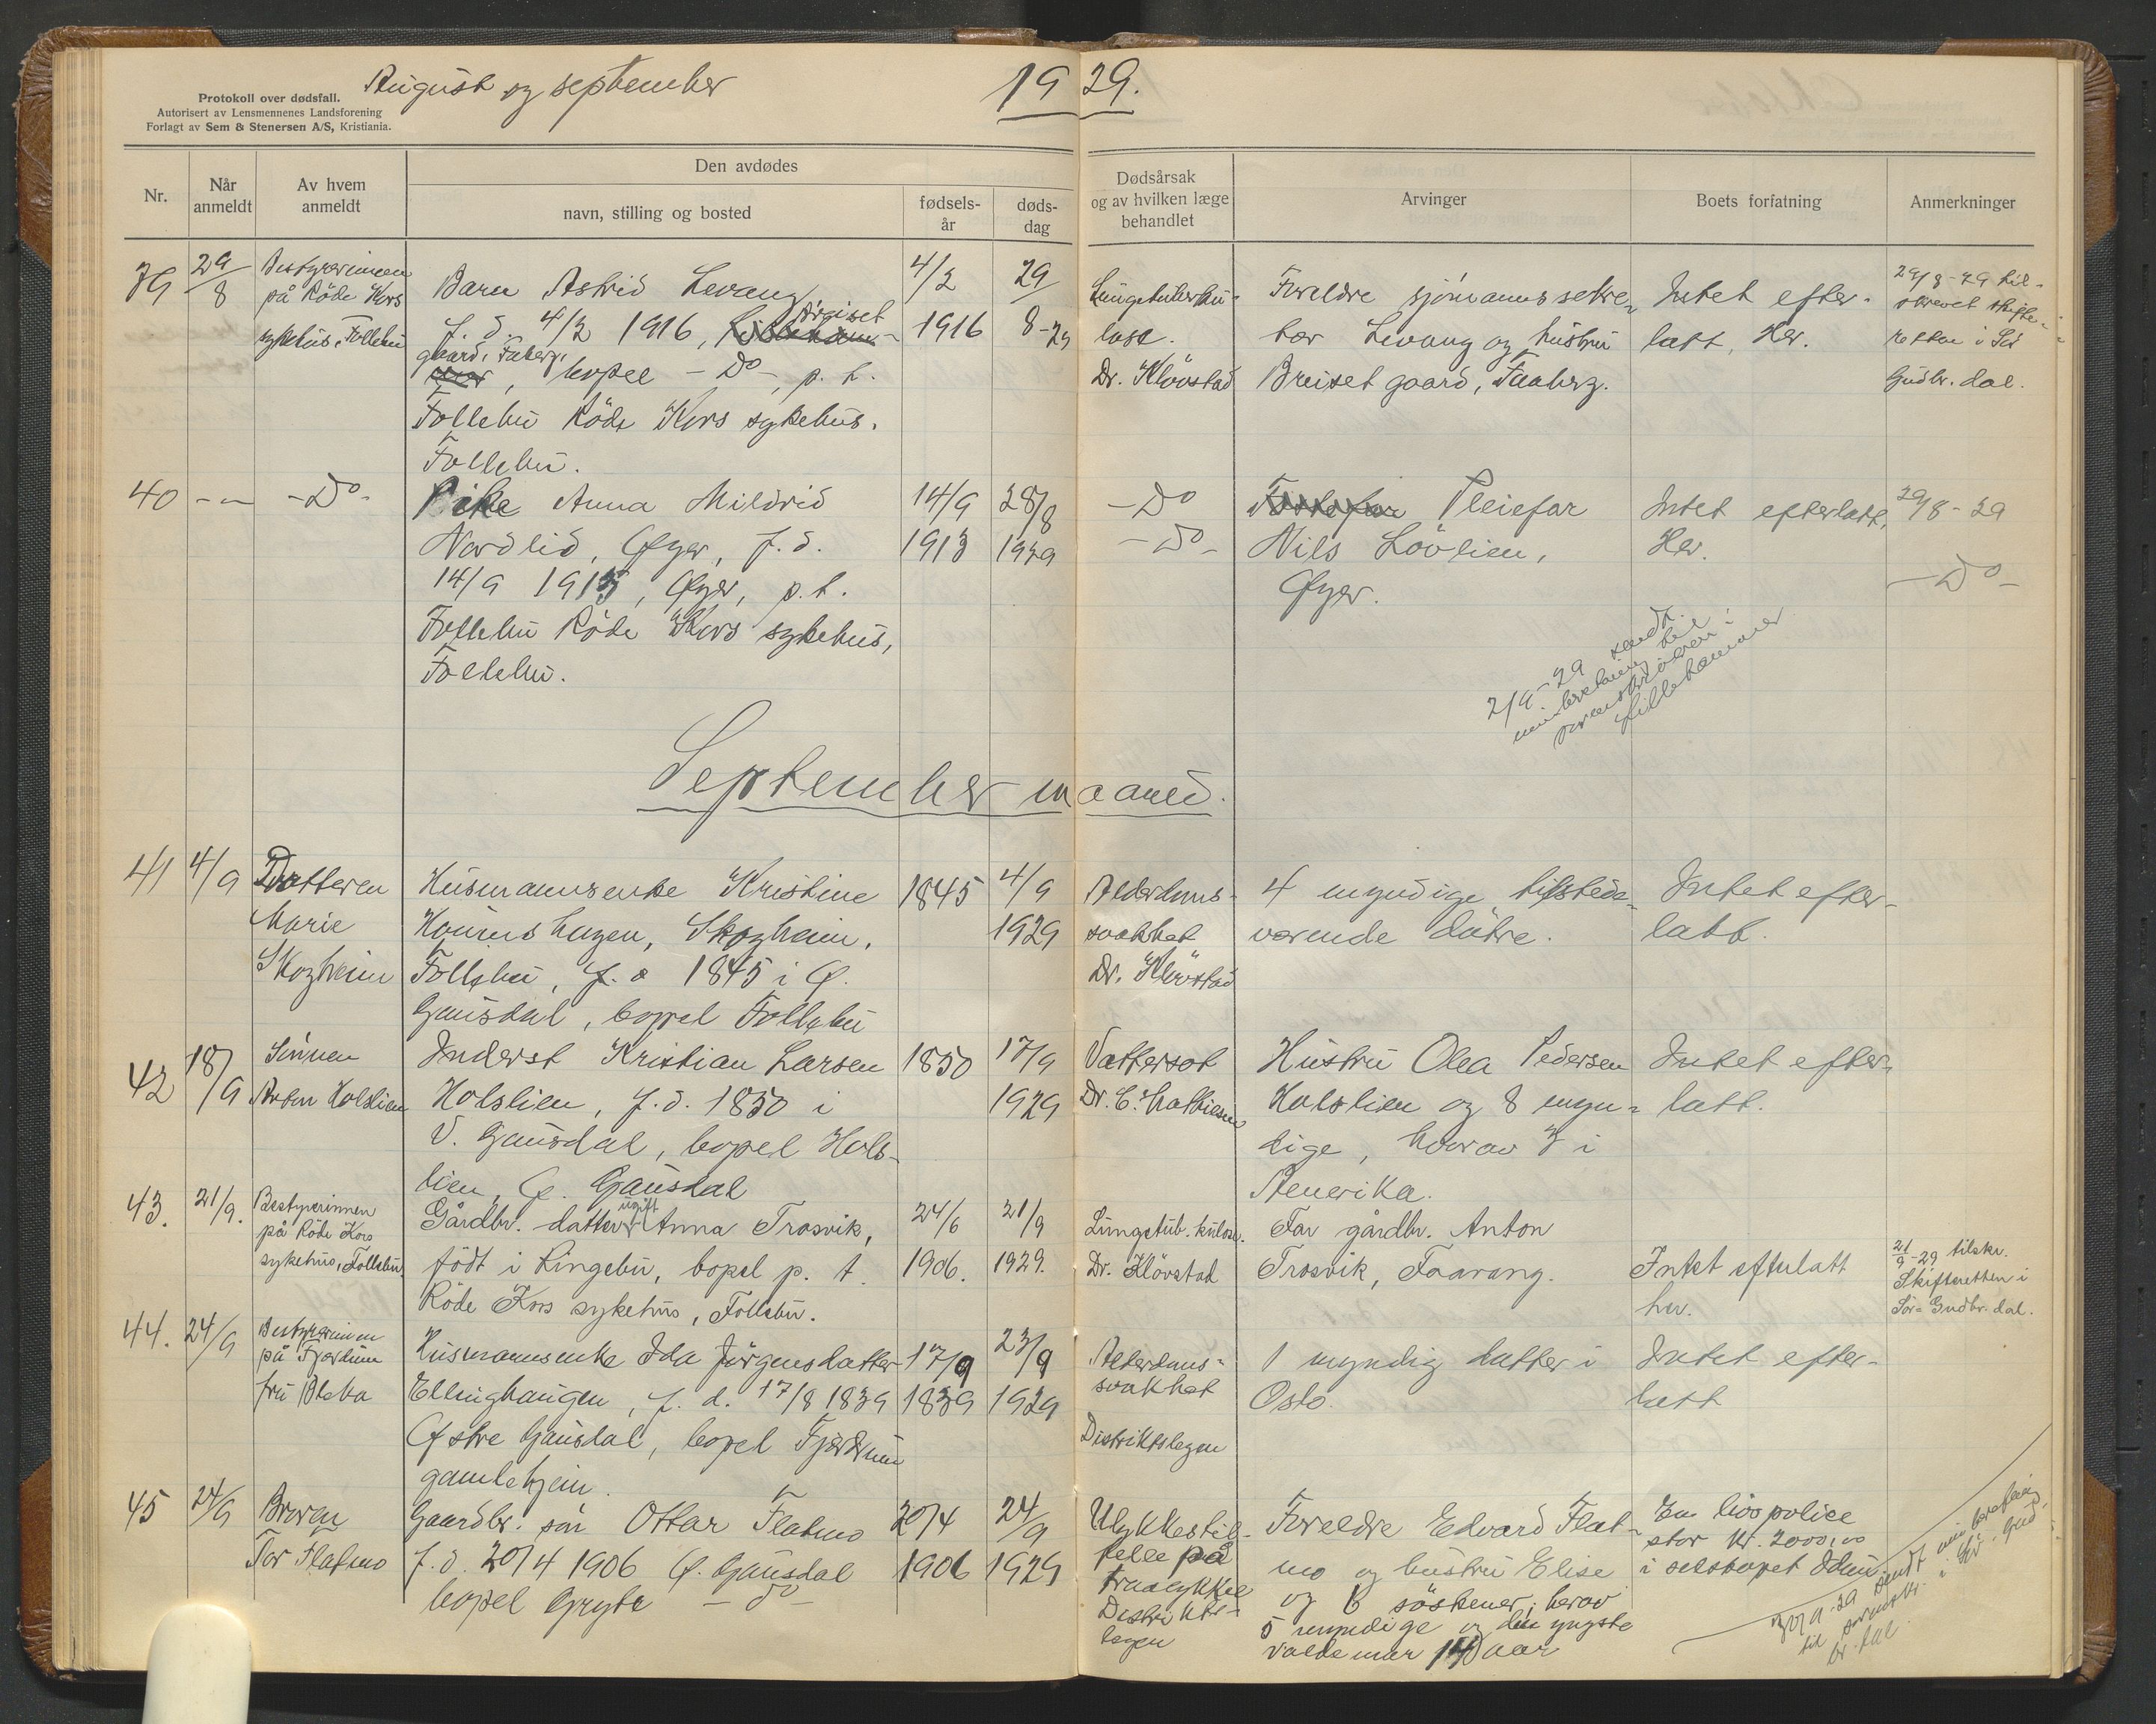 August og september 1929.
Protokoll over dødsfall.
Autorisert av Lensmennenes Landsforening
Forlagt av Sem & Stenersen A/S, Kristiania.
Nr.
Når anmeldt
Av hvem anmeldt
Den avdødes
navn, stilling og bosted
fødsels-år
døds-dag
Dødsårsak og av hvilken læge behandlet
Arvinger
Boets forfatning
Anmerkninger
39
29/8
Bestyrerinnen
på Röde Kors
sykehus, Follebu
Barn Astrid Levang
f. d. 4/2 1916,
gaard, Faaberg,
bopel - Do -, p. t.
Follebu Röde Kors sykehus.
Follebu.
4/2
1916
29/
8-29
Lungetuberku-
lose.
Dr. Klövstad
Foreldre sjömannssekre-
tær Levang og hustru
Breiset gaard, Faaberg.
Intet efter-
latt, Her.
29/8-29 til-
skrevet skifte-
retten i Sør
Gudbr. dal.
40
- " -
- Do -
Pike Anna Mildrid
Nordlid, Øyer, f. d.
14/9 1913, Øyer, p. t.
Follebu Röde Kors sykehus,
Follebu.
14/9
1913
28/8
1929
- Do
- Do -
Pleiefar
Nils Lövlien,
Øyer.
Intet efterlatt,
Her.
29/8-29
- Do -
2/9-29 sendt
innberetning til
sorenskriveren i
Lillehammer
September maaned.
41
4/9
Datteren
Marie
Skogheim
Husmannsenke Kristine
Skogheim,
Follebu, f. d 1845 i Ø.
Gausdal, bopel Follebu
1845
4/9
1929
Alderdoms-
svakhet
Dr. Klövstad
4 myndige tilstede-
værende døtre.
Intet efter-
latt.
42
18/9
Sönnen
Anton Holslien
Inderst Kristian Larsen
Holslien, f. d. 1850 i
V. Gausdal, bopel Hols-
lien, Ø. Gausdal
1850
17/9
1929
Vattersot
Dr. E. Mathiesen
Hustru Olea Pedersen
Holslien og 8 myn-
dige, hvorav 3 i
Amerika.
Intet efter-
latt.
43.
21/9.
Bestyrerinnen
på Röde Kors
sykehus, Follebu.
Gårdbr. datter ugift Anna Trosvik,
födt i Ringebu, bopel p. t.
Röde Kors sykehus, Follebu.
24/6
1906.
21/9
1929.
Lungetub.kulose.
Dr. Klövstad
Far gårdbr. Anton
Trosvik, Faavang.
Intet efterlatt
her.
21/9-29 tilskr.
Skifteretten i
Sör-Gudbr. dal.
44.
24/9
Bestyrerinnen
på Fjerdum
fru
Husmannsenke Ida Jørgensdatter
Ellinghaugen, f. d. 17/8 1839
Østre Gausdal, bopel Fjerdum
gamlehjem.
17/9
1839
23/9
1929
Alderdoms-
svakhet
Distriktslegen
1 myndig datter i
Oslo.
Intet efter-
latt
45
24/9
Broren
Tor Flatmo
Gaardbr. søn Ottar Flatmo
f. d. 20/4 1906 Ø. Gausdal
bopel Gryte - do -
20/4
1906
24/9
1929
Ulykkestil-
felle på
Distrikts-
legen
Foreldre Edvard Flat-
mo og hustru Elise
og 6 söskener, herav
5 myndige og den yngste
Valdemar 14 aar
En livspolice
stor kr. 2000,00
i selskapet Idun
sendt innberetning
til sorenskr. i Sör-Gud-
br.dal